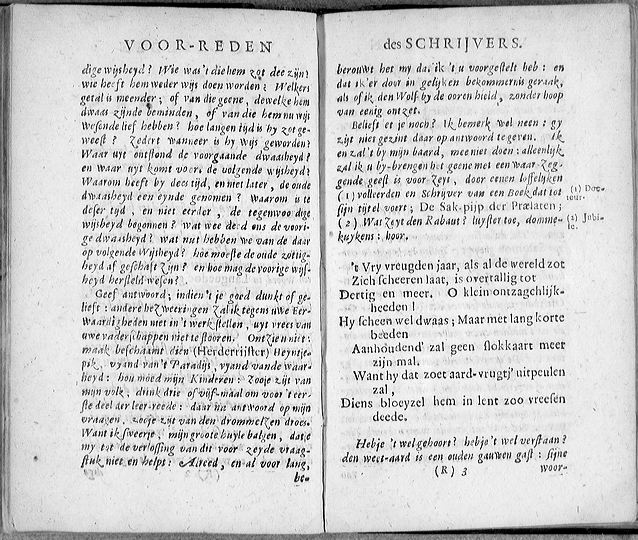 VOOR-REDEN
dige wijsheyd? Wie was 't die hem zot dee zijn?
wie heeft hem weder wijs doen worden? Welkers
getal is meender; of van die geene, dewelke hem
dwaas zijnde beminden, of van die hem nu wijs
wesende lief hebben? hoe langen tijd is hy zot ge-
weest? Zedert wanneer is hy wijs geworden?
Waar uyt ontstond de voorgaande dwaasheyd?
en waar uyt komt voort de volgende wijsheyd?
Waarom heeft by des tijd, en niet later, de oude
dwaasheyd een eynde genomen? waarom is te
deser tijd, en niet eerder, de tegenwoordige
wijsheyd begonnen? wat wee deed ons de voori-
ge dwaasheyd? wat nut hebben we van de daar
op volgende Wijsheyd? hoe moeste de oude zottig-
heyd af geschaft zijn? en hoe mag de voorige wijs-
heyd hersteld wesen?
Geef antwoord; indien 't je goed dunkt of ge-
lieft: andere bezweeringen zal ik tegens uwe Eer-
waardigheden niet in 't werk stellen, uyt vrees van
uwe vaderschappen niet te stooren. Ontzie u niet:
maak beschaamt dien (Herderrijster) Heyntje-
pik, vyand van 't Paradijs, vyand van de waar-
heyd: hou moed mijn Kinderen: Zooje zijt van
mijn volk, drink drie of vijf-maal om voor 't eer-
ste deel der leer-reede: daar na antwoord op mijn
vraagen, zooje zijt van den drommel en droes.
Want ik sweerje, mijn groote huyle balgen, dat je
my tot de verlossing van dit voor zeyde vraag-
stuk niet en helpt: Alreed, en al voor lang,
be-
des SCHRIJVERS.
berouwt het my dat ik 't u voorgestelt heb: en
dat ik 'er door in gelijken bekommernis geraak,
als of ik den Wolf by de ooren hield, zonder hoop
van eenig ontzet.
Belieft et je noch? Ik bemerk wel neen: gy
zijt niet gezint daar op antwoord te geven. Ik
en zal 't by mijn baard, mee niet doen: alleenlijk
zal ik u by-brengen het geene met een waar-zeg-
gende geest is voor zeyt, door eenen loffelijken
(1) volleerden en Schrijver van een Boek dat tot
sijn tijtel voert; De Sak-pijp der Prælaten;
(2) Wat zeyt den Rabaut? luyster toe, domme-
kuykens: hoor.
(1) Doc-
teur.
(2) Jubi-
le.
't Vry vreugden jaar, als al de wereld zot
Zich scheeren laat, is overtallig tot
Dertig en meer. O klein ontzagchlijk-
heeden!
Hy scheen wel dwaas; Maar met lang korte
beeden
Aanhoudend' zal geen slokkaart meer
zijn mal.
Want hy dat zoet aard-vrugtj' uitpeulen
zal,
Diens bloeyzel hem in lent zoo vreesen
deede.
Hebje 't wel gehoort? hebje 't wel verstaan?
den weet-aard is een ouden gauwen gast: sijne
(R) 3
woor-